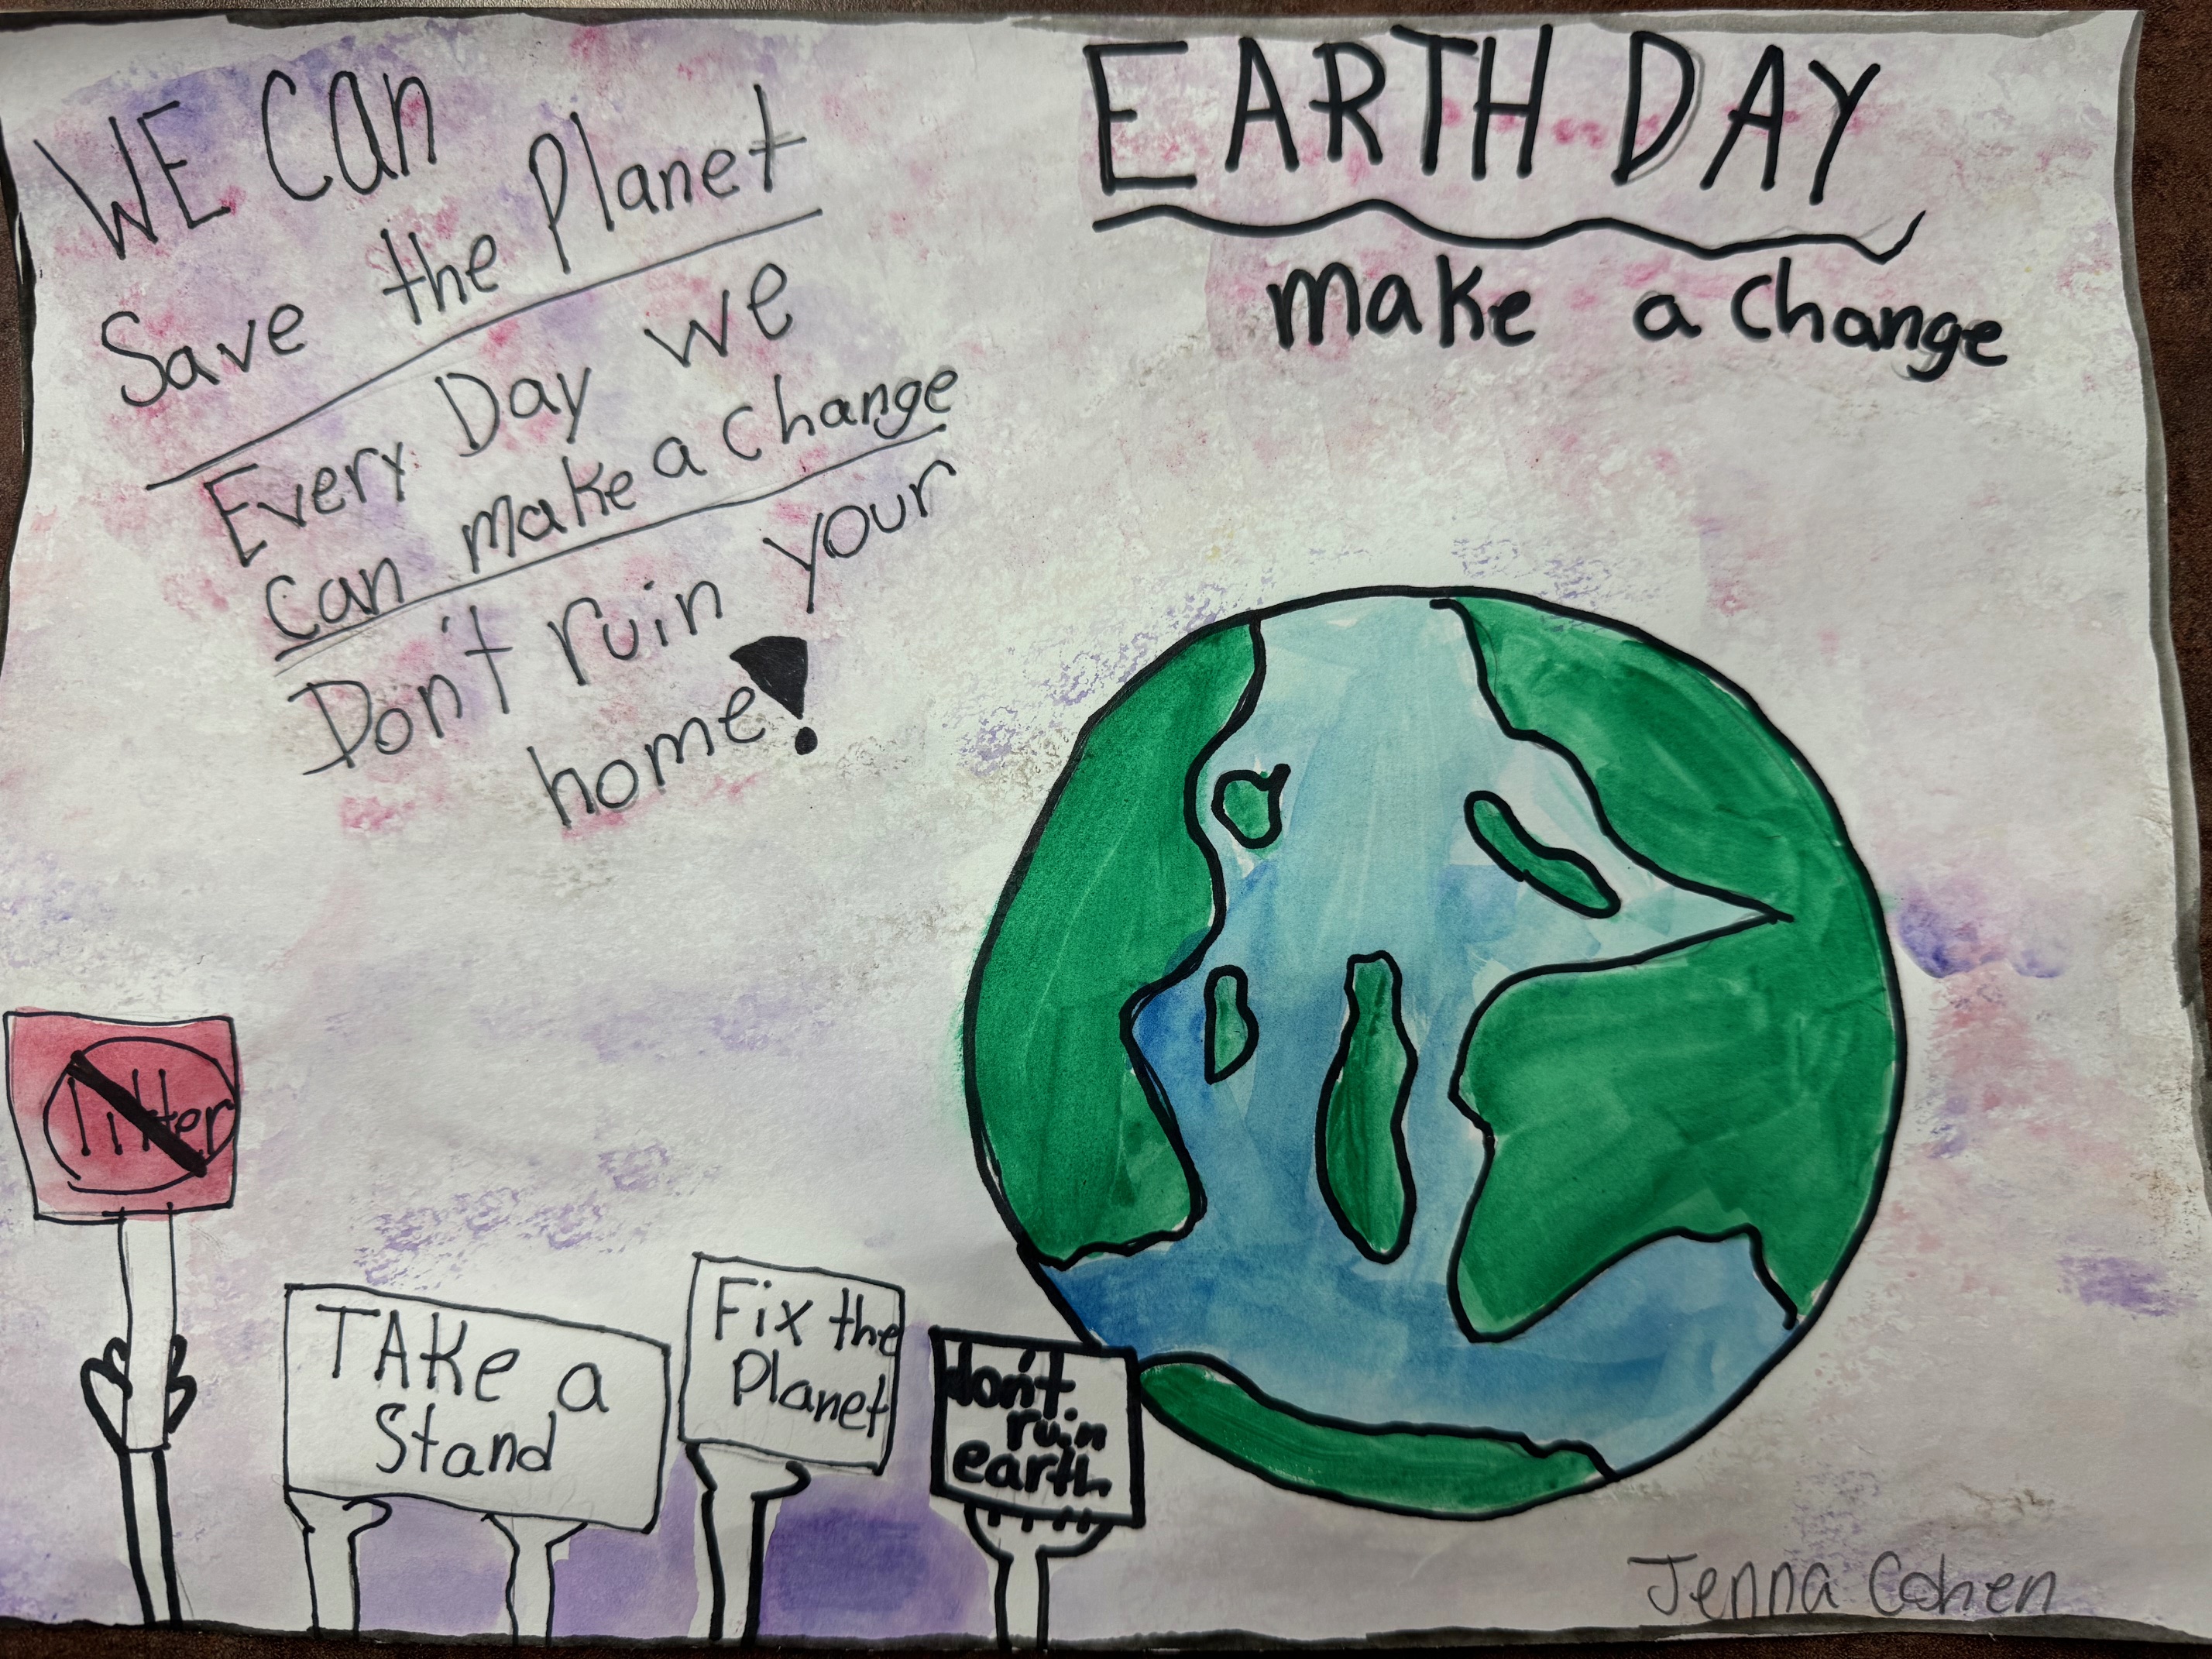 WE Can
Save the Planet
Every Day we
can make a change
Don't ruin your
home!
EARTH DAY
make a change
litter
TAKe a
Stand
Fix the
Planet
don't
ruin
earth
Jenna Cohen